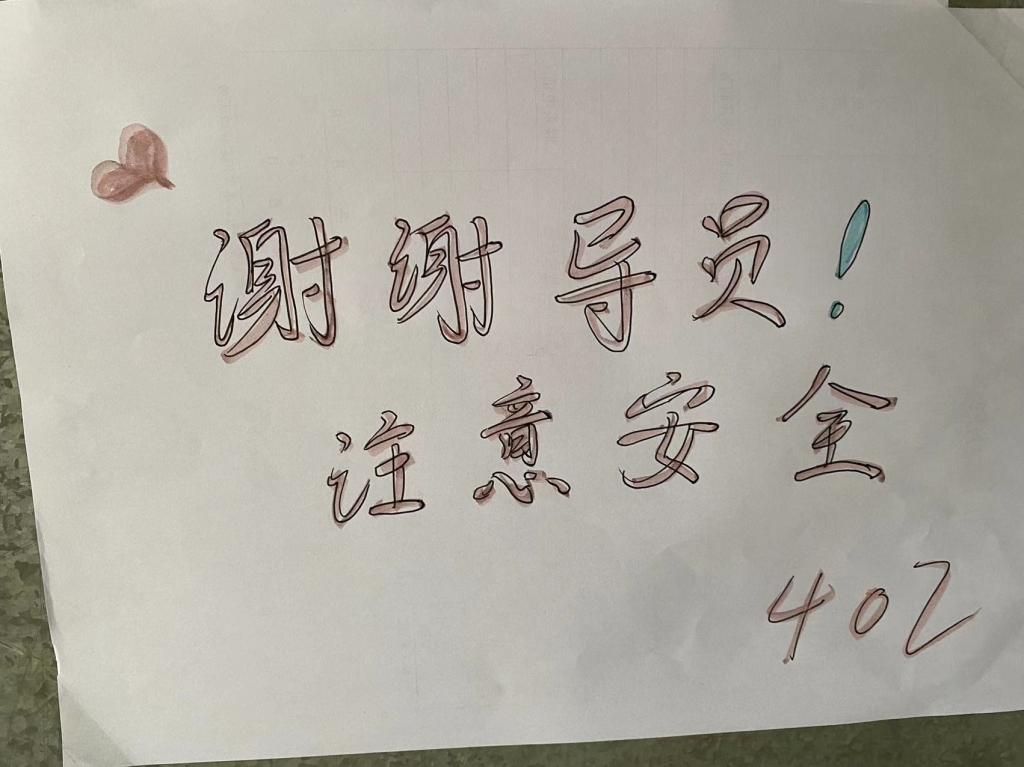 谢谢导员!
注意安全
402